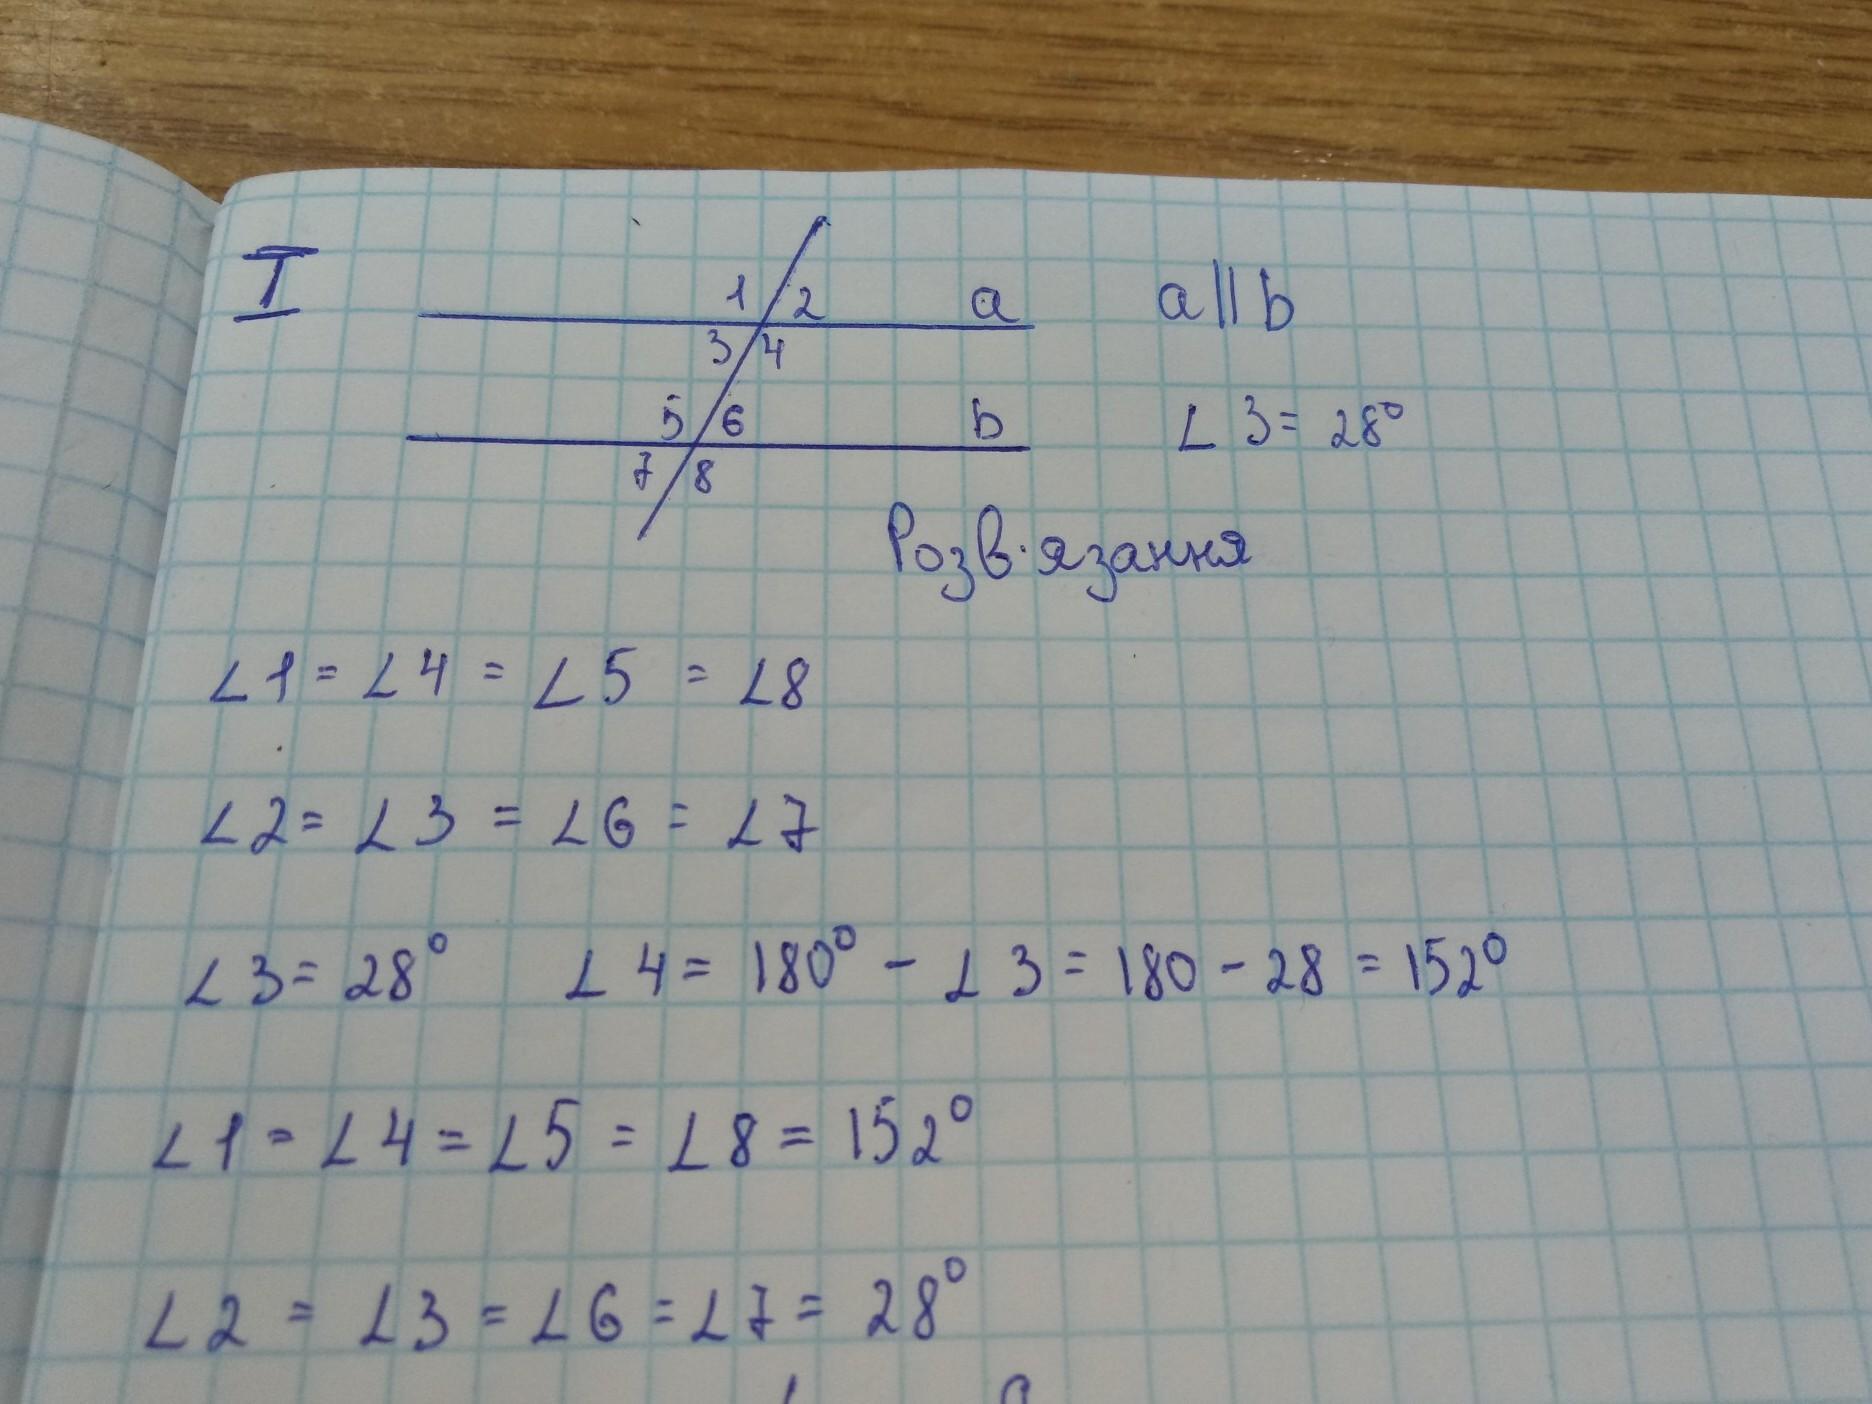 I
1 2 a a || b
3 4
5 6 b ∠ 3 = 28°
7 8
Розв'язання
∠1 = ∠4 = ∠5 = ∠8
∠2 = ∠3 = ∠6 = ∠7
∠3 = 28° ∠4 = 180° - ∠3 = 180 - 28 = 152°
∠1 = ∠4 = ∠5 = ∠8 = 152°
∠2 = ∠3 = ∠6 = ∠7 = 28°